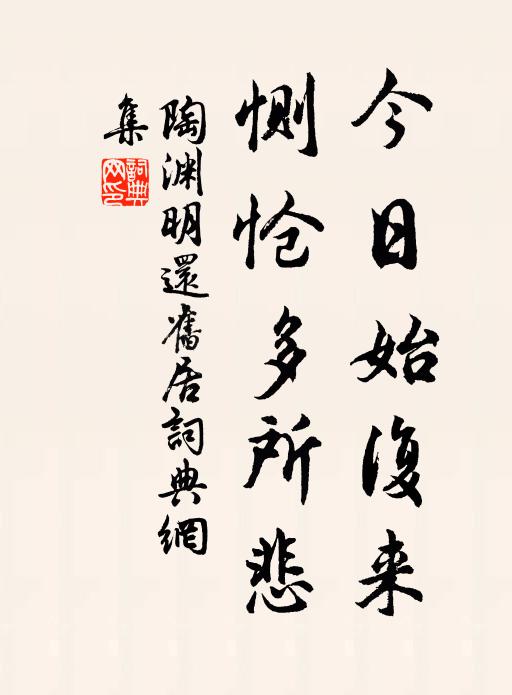 今日始復来
惻怆多所悲
陶渊明還舊居詞典網
集
詞典
网印